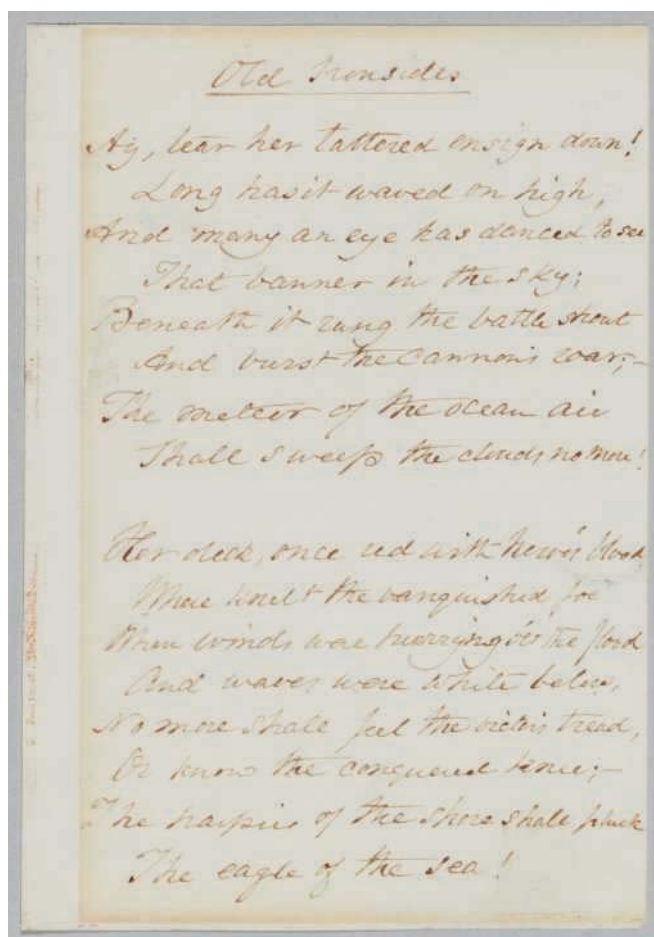 Old Ironsides
Ay, tear her tattered ensign down!
Long has it waved on high,
And many an eye has danced to see
That banner in the sky;
Beneath it rung the battle shout
And burst the Cannon's roar;–
The meteor of the ocean air
Shall sweep the clouds no more!
Her deck, once red with heroes' blood
Where knelt the vanquished foe
When winds were hurrying o'er the flood
And waves were white below,
No more shall feel the victor's tread,
Or know the conquered knee;–
The harpies of the shore shall pluck
The eagle of the sea!